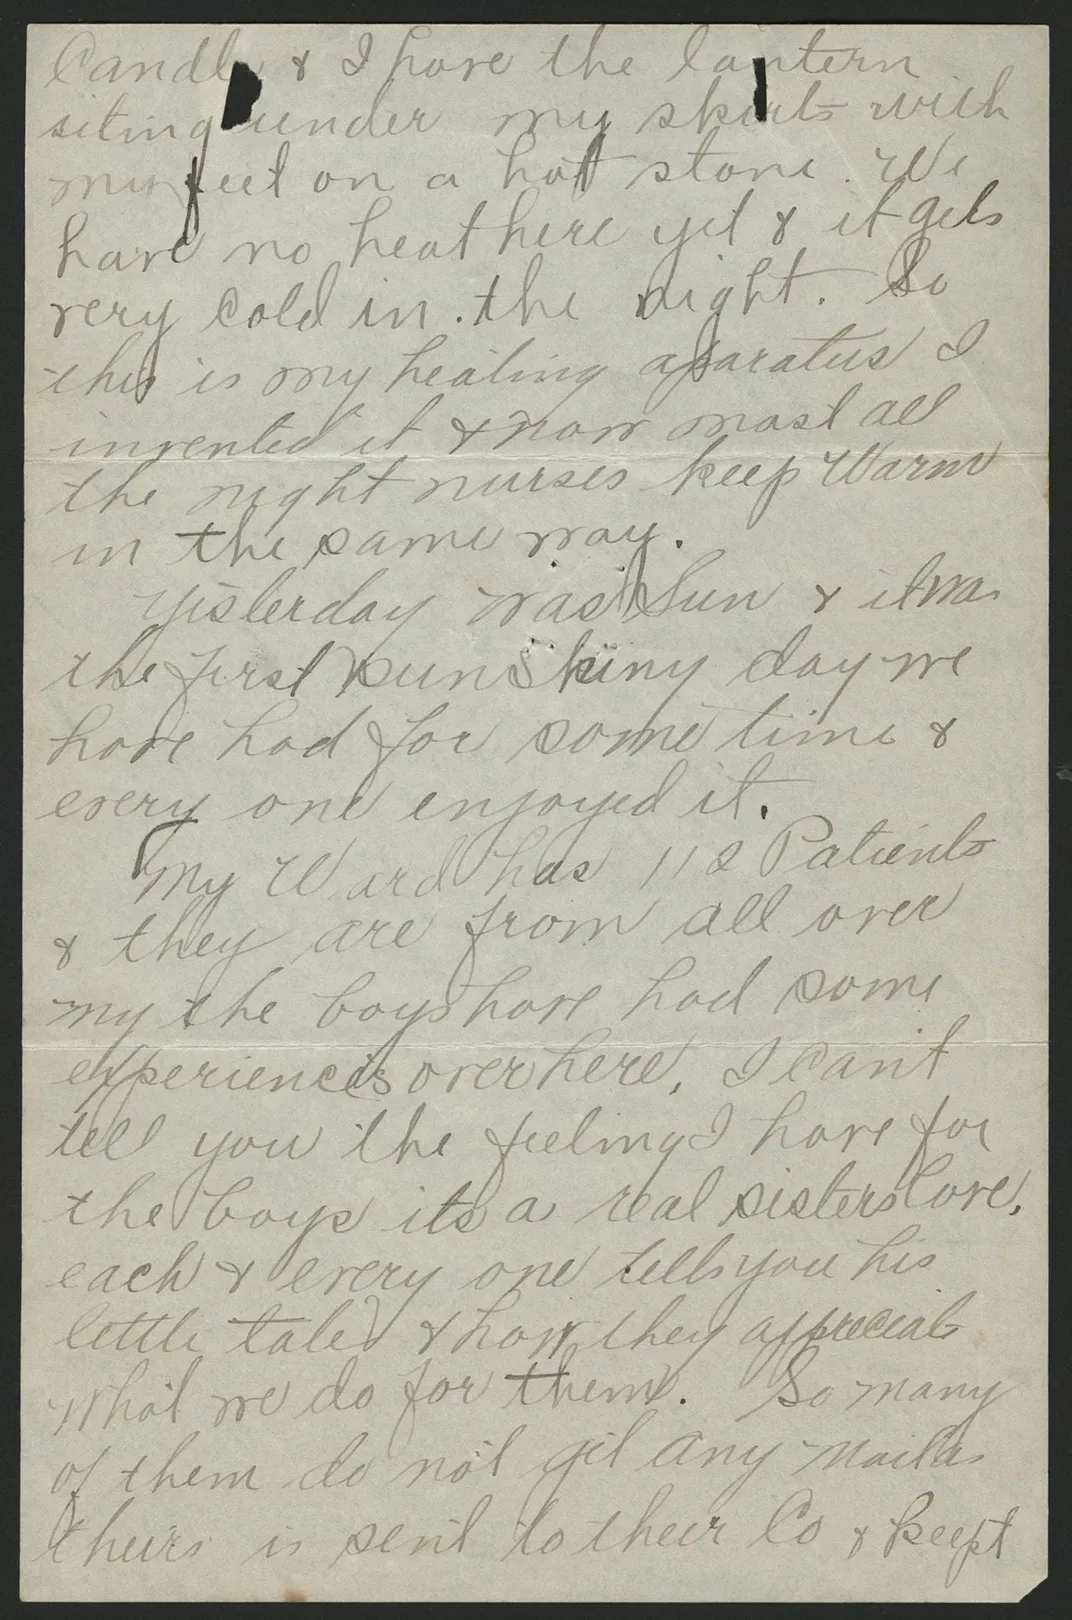 Candle & I have the lantern
siting under my skirts with
my feet on a hot stone. We
have no heat here yet & it gets
very cold in the night. So
this is my heating aparatus I
invented it & now most all
the night nurses keep Warm
in the same way.
yesterday was Sun & it was
the first sunShiny day we
have had for some time &
every one enjoyed it.
My Ward has 112 Patients
& they are from all over
my the boys have had some
experiences over here, I can't
tell you the feeling I have for
the boys its a real sisters love.
each & every one tells you his
little tale & how they appreciate
what we do for them. So many
of them do not get any mail as
theirs is sent to their Co & keept